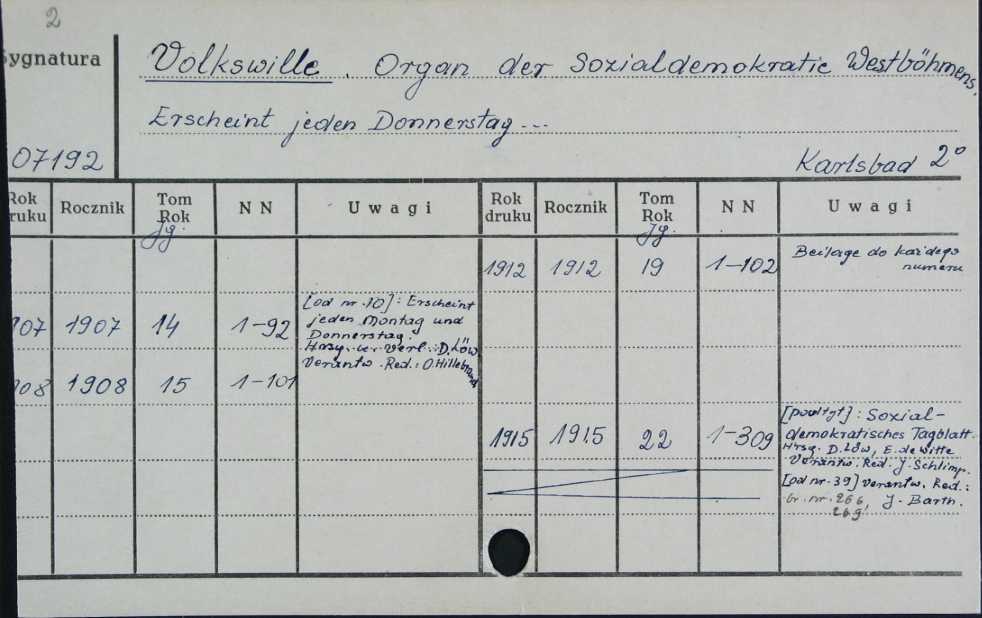 2
Sygnatura
Volkswille. Organ der Sozialdemokratie Westböhmens.
Erscheint jeden Donnerstag...
07192
Karlsbad 2°
Rok druku Rocznik Tom Rok Jg. NN Uwagi
Rok druku Rocznik Tom Rok Jg. NN Uwagi
1912 1912 19 1-102 Beilage do każdego
numeru
907 1907 14 1-92 [od nr. 10]: Erscheint
jeden Montag und
Donnerstag.
Hrsg. u. Verl.: D. Löw
Verantw. Red.: O. Hillebrand
908 1908 15 1-101
1915 1915 22 1-309 [podtyt]: Sozial-
demokratisches Tagblatt.
Hrsg. D. Löw, E. de Witte
Verantw. Red. J. Schlimp.
[od nr. 39] verantw. Red.:
J. Barth.
br. nr. 266,
269